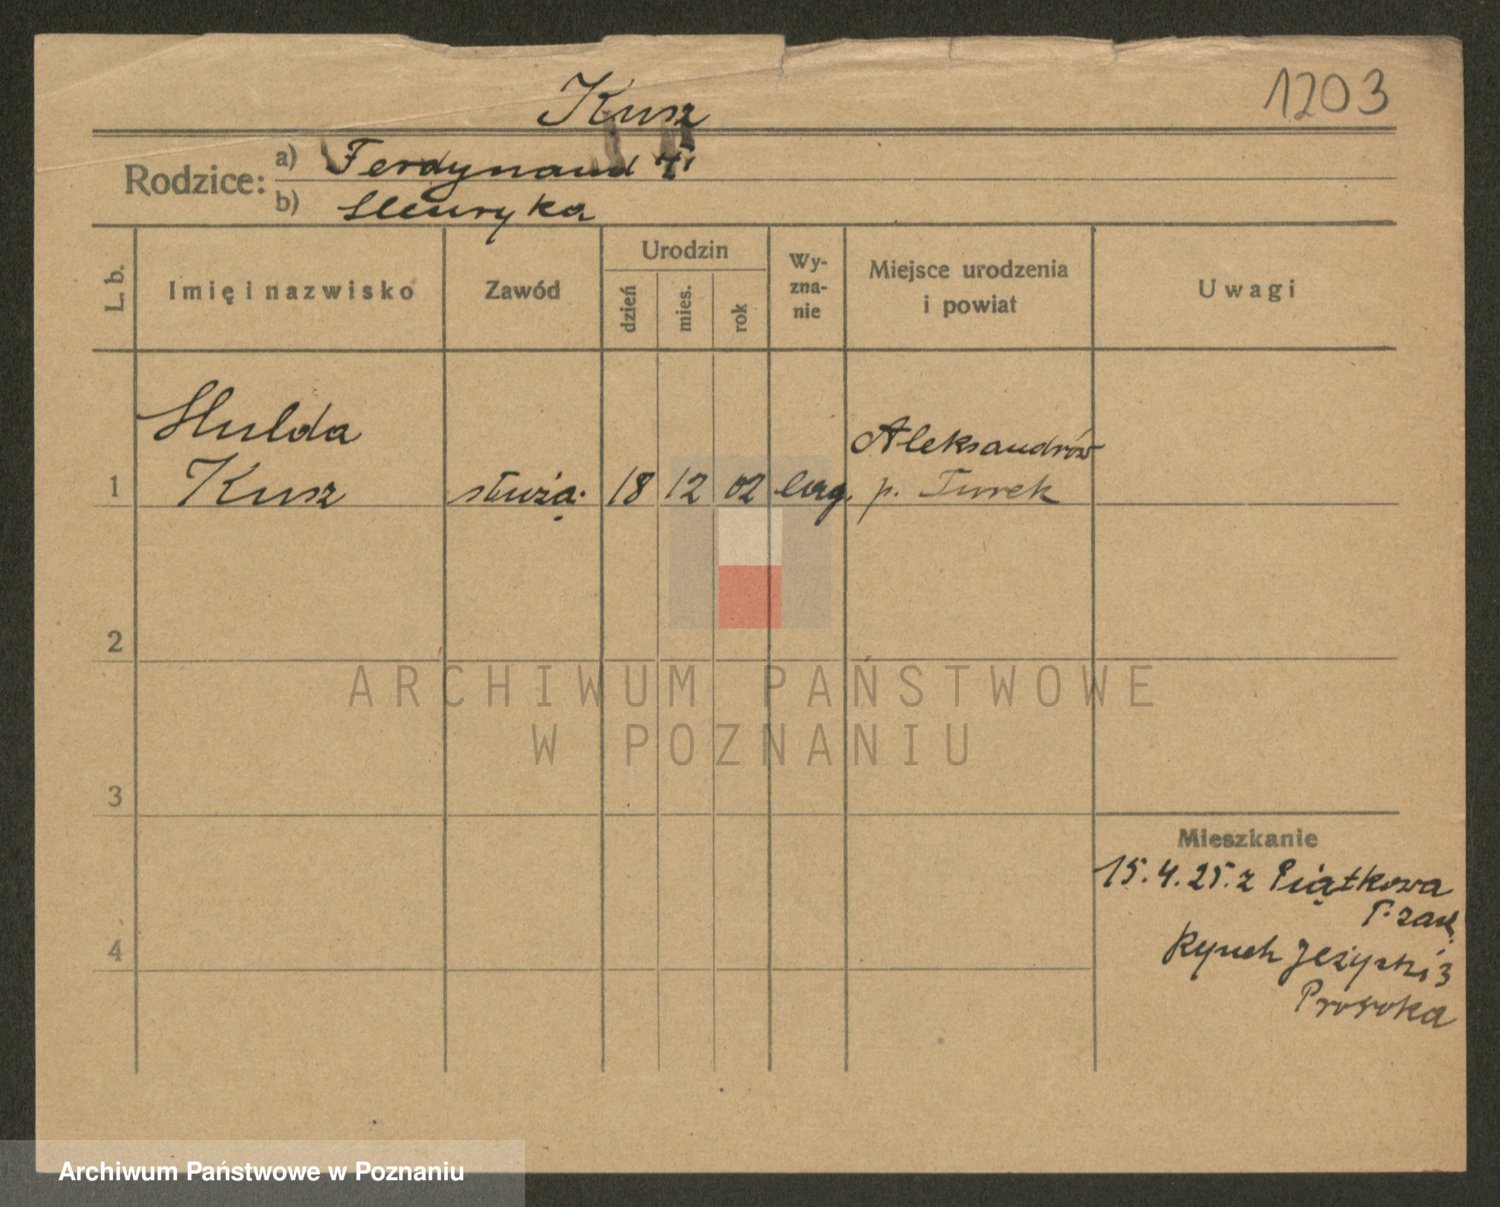 1203
Kusz
Rodzice:
a) Ferdynand
b) Henryka
L. b.
Imię i nazwisko
Zawód
Urodzin
dzień
mies.
rok
Wy-
zna-
nie
Miejsce urodzenia
i powiat
Uwagi
Hulda
1 Kusz służą. 18 12 02 Aleksandrów
p. Turek
2
3
4
ARCHIWUM PAŃSTWOWE
W POZNANIU
Mieszkanie
15.4.25. z Piątkowa
Rynek Jeżycki 3
Archiwum Państwowe w Poznaniu